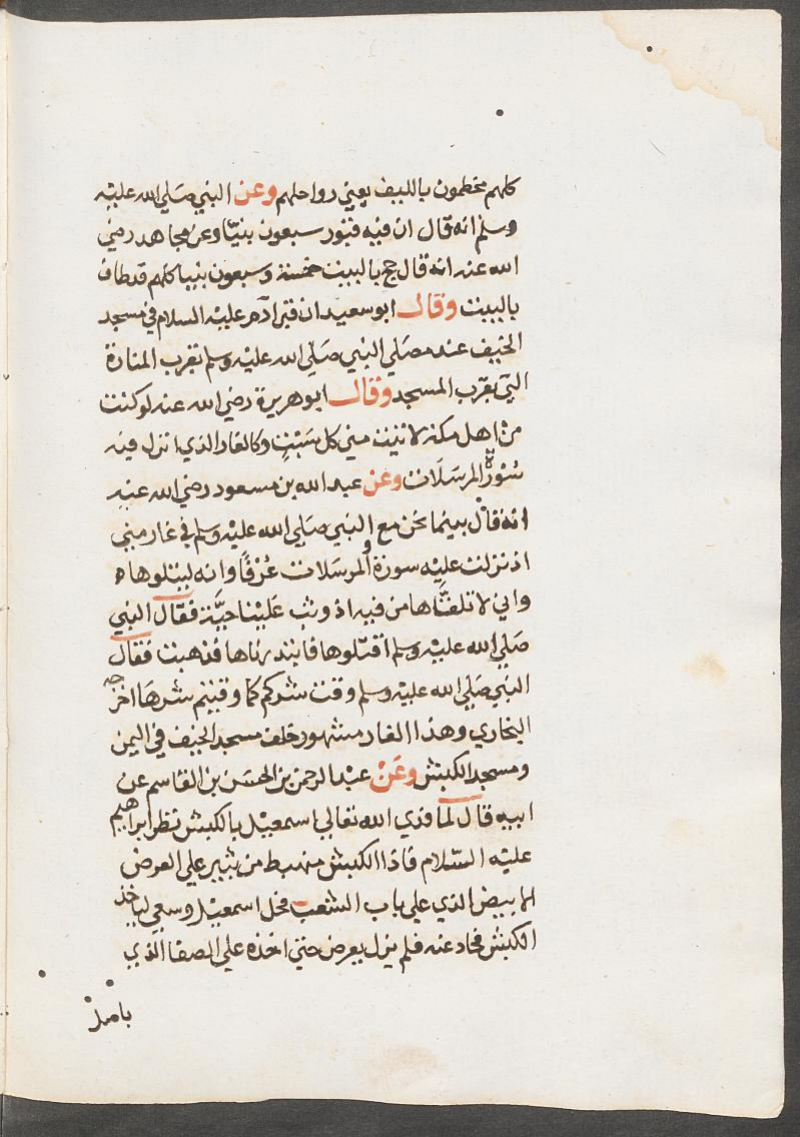 كلهم مخطمون بالليف يعني رواحلهم وعن النبي صلي الله عليه
وسلم انه قال ان فيه قبور سبعون نبيّا وعن مجاهد رضي
الله عنه انه قال حج بالبيت خمسة وسبعون نبيا كلهم قد طاف
بالبيت وقال ابو سعيد ان قبر ادم عليه السلام في مسجد
الخيف عند مصلي النبي صلي الله عليه وسلم بقرب المنارة
التي بقرب المسجد وقال ابو هريرة رضي الله عنه لو كنت
من اهل مكة لاتيت مني كل سبت وكالغار الذي انزل فيه
سورة المرسلات وعن عبد الله بن مسعود رضي الله عنه
انه قال بينما نحن مع النبي صلي الله عليه وسلم في غار مني
اذ نزلت عليه سورة والمرسلات عرفًا وانه ليتلوها
واني لاتلقاها من فيه اذ وثب علينا حيّة فقال النبي
صلي الله عليه وسلم اقتلوها فابتدرناها فذهبت فقال
النبي صلي الله عليه وسلم وقت شركم كما وقيتم شرها اخرجه
البخاري وهذا الغار مشهور خلف مسجد الخيف في اليمن
ومسجد الكبش وعن عبد الرحمن بن الحسن بن القاسم عن
ابيه قال لما فدي الله تعالي اسمعيل بالكبش نظر ابراهيم
عليه السلام فاذا الكبش منهبط من ثبير علي العرض
الابيض الذي علي باب الشعب فخل اسمعيل وسعي لياخذ
الكبش فحاد عنه فلم يزل يعرض حتي اخذه علي الصفا الذي
باصل